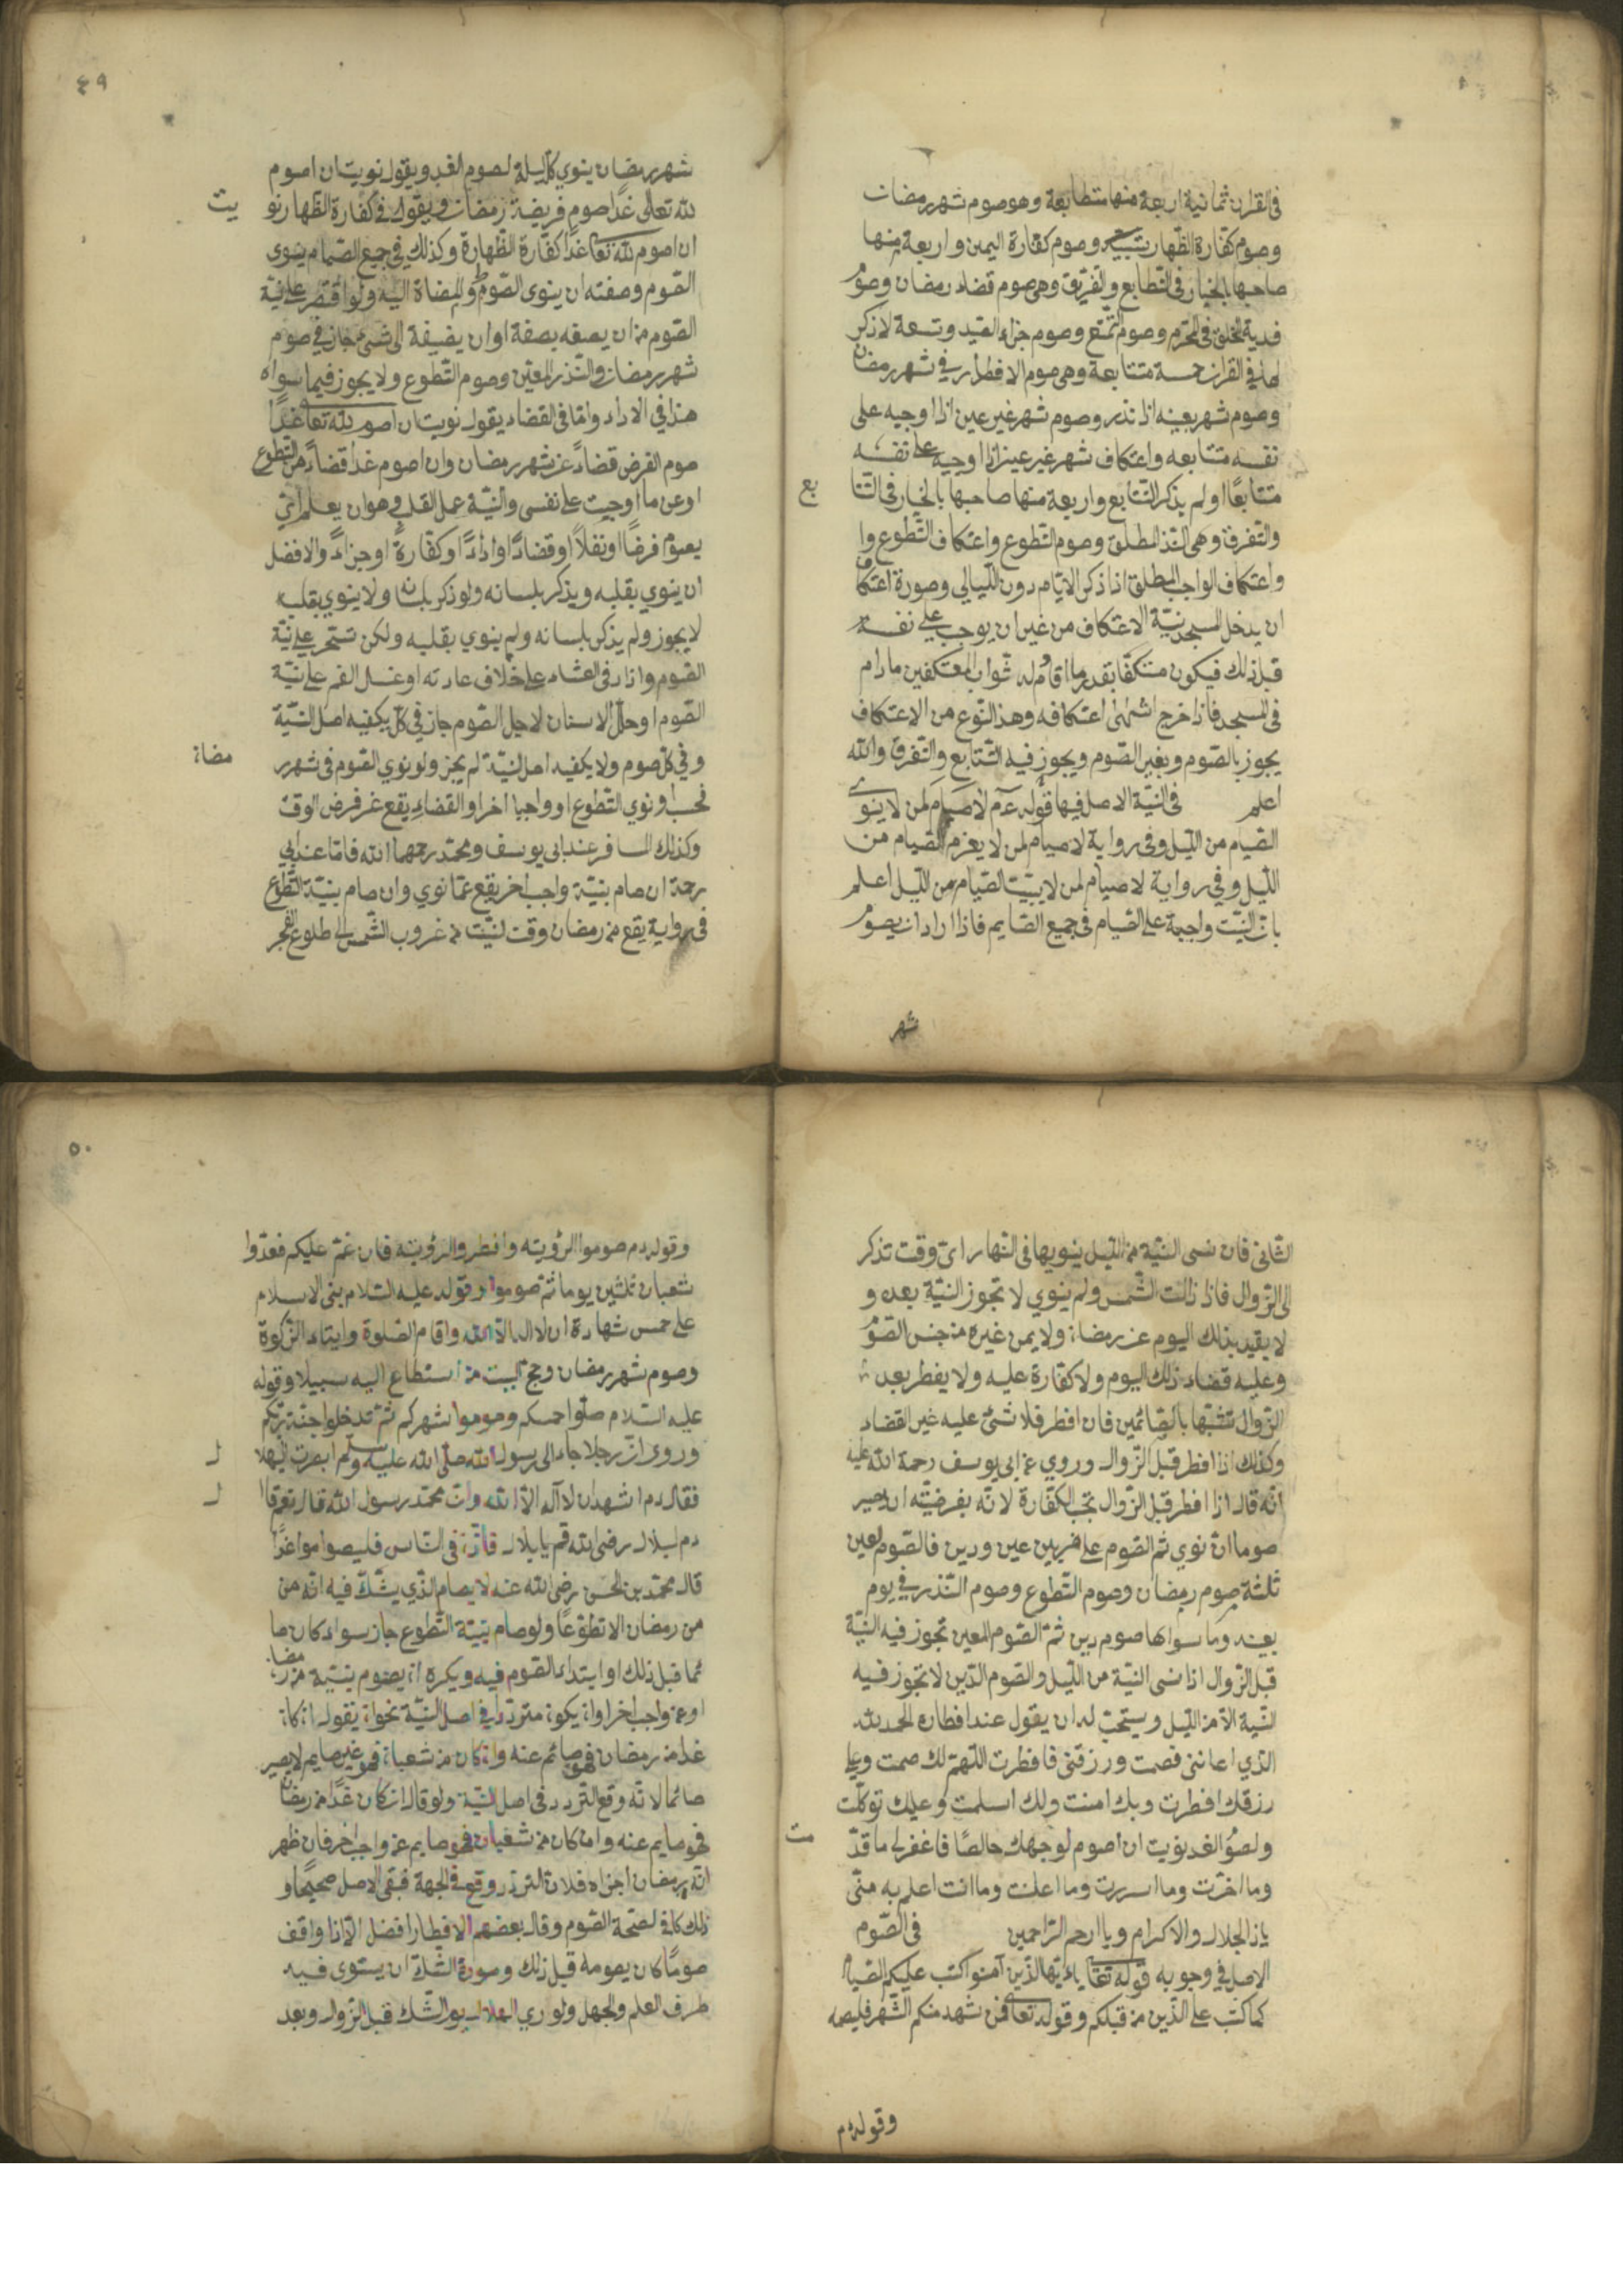 في القران ثمانية اربعة منها متطابعة وهو صوم شهر رمضان
وصوم كفارة الظهار وصوم كفارة اليمين واربعة منها
صاحبها بالخيار في التطابع والتفريق وهي صوم قضاء رمضان وصوم
فدية الحلق في المحرم وصوم التمتع وصوم جزاء الصيد وتسعة لا ذكر
لها في القران خمسة متتابعة وهي صوم الافطار في شهر رمضان
وصوم شهر بعينه اذا نذر وصوم شهر غير عين اذا اوجبه على
نفسه متتابعه واعتكاف شهر غير عين اذا اوجبه على نفسه
متتابعًا او لم يذكر التتابع واربعة منها صاحبها بالخيار في التتا
بع
والتفرق وهي النذر المطلق وصوم التطوع واعتكاف التطوع وا
واعتكاف الواجب المطلق اذا ذكر الايام دون الليالي وصورة اعتكاف
ان يدخل المسجد بنية الاعتكاف من غير ان يوجب على نفسه
قبل ذلك فيكون متكفا بقدر ما اقام وله ثواب المعتكفين ما دام
في المسجد فاذا خرج انتهى اعتكافه وهذا النوع من الاعتكاف
يجوز بالصوم وبغير الصوم ويجوز فيه التتابع والتفرق والله
اعلم في النية الاصل فيها قوله عم لا صيام لمن لا ينوي
الصيام من الليل وفي رواية لا صيام لمن لا يعزم الصيام من
الليل وفي رواية لا صيام لمن لا يبيت الصيام من الليل اعلم
بان النيت واجبة على الصيام في جميع الصايم فاذا اراد ان يصوم
شهر
٤٩
شهر رمضان ينوي كل ليلة لصوم الغد ويقول نويت ان اصوم
لله تعالى غدا صوم فريضة رمضان ويقول في كفارة الظهار نو
يت
ان اصوم لله تعا غدًا كفارة الظهارة وكذلك في جميع الصيام ينوى
الصوم وصفته ان ينوى الصوم والمضاة اليه ولو اقتصر على نية
الصوم من ان يصفه بصفة او ان يضيفة الى شئ جاز في صوم
شهر رمضان والنذر المعين وصوم التطوع ولا يجوز فيما سواه
هذا في الاداء واما في القضاء يقول نويت ان اصوم لله تعا غدًا
صوم الفرض قضاءً عن شهر رمضان وان اصوم غدا قضاءً من التطوع
او عن ما اوجبت على نفسى والنية عمل القلب وهو ان يعلم اي
يصوم فرضًا او نفلاً او قضاءً او اداءً او كفارةً او جزاءً والافضل
ان ينوي بقلبه ويذكر بلسانه ولو ذكر بلسانه ولا ينوي بقلبه
لا يجوز ولم يذكر بلسانه ولم ينوي بقلبه ولكن تسحر على نية
الصوم وازاد في العشاء على خلاف عادته او غسل الفم على نية
الصوم او حلل الاسنان لاجل الصوم جاز في كل يكفيه اصل النية
وفي كل صوم ولا يكفيه اصل النية لم يجز ولو نوي الصوم في شهر
مضان
فحسب او نوي التطوع او واجبا اخر او القضاء يقع عن فرض الوقت
وكذلك المسافر عند ابى يوسف ومحمد رحمهما الله فاما عند ابي
رحمة ان صام بنية واجب اخر يقع عما نوي وان صام بنية التطوع
في رواية يقع من رمضان وقت لنيت من غروب الشمس الى طلوع الفجر
الثانى فان نسى النية من الليل ينويها في النهار اى وقت تذكر
الى الزوال فاذا زالت الشمس ولم ينوي لا تجوز النية بعده و
لا يقيد بذلك اليوم عن رمضان ولا يمن غيره من جنس الصوم
وعليه قضاء ذلك اليوم ولا كفارة عليه ولا يفطر بعد
الزوال تشبها بالصائمين فان افطر فلا شئ عليه غير القضاء
وكذلك اذا افطر قبل الزوال وروي عن ابى يوسف رحمة الله عليه
انه قال اذا افطر قبل الزوال تجب الكفارة لانه بفرضيته ان يصير
صوما ان نوي ثم الصوم على ضربين عين ودين فالصوم لعين
ثلثة صوم رمضان وصوم التطوع وصوم النذر في يوم
بعينه وما سواها صوم دين ثم الصوم المعين تجوز فيه النية
قبل الزوال اذا نسى النية من الليل والصوم الدين لا تجوز فيه
النية الا من الليل ويستحب له ان يقول عند افطاره الحمد لله
الذي اعاننى فصمت ورزقنى فافطرت اللهم لك صمت وعلى
رزقك افطرت وبك امنت ولك اسلمت وعليك توكلت
ولصوم الغد نويت ان اصوم لوجهك خالصًا فاغفر لى ما قد
مت
وما اخرت وما اسررت وما اعلنت وما انت اعلم به منى
يا ذا الجلال والاكرام ويا ارحم الراحمين في الصوم
الاصل في وجوبه قوله تعا ياءيها الذين آمنوا كتب عليكم الصيام
كما كتب على الذين من قبلكم وقوله تعا فمن شهد منكم الشهر فليصمه
وقوله م
٥٠
وقوله م صوموا لرؤيته وافطروا لرؤيته فان غم عليكم فعدوا
شعبان ثلثين يوما ثم صوموا وقوله عليه السلام بنى الاسلام
على خمس شهادة ان لا اله الا الله واقام الصلوة وايتاء الزكوة
وصوم شهر رمضان وحج البيت من استطاع اليه سبيلا وقوله
عليه السلام صلوا خمسكم وصوموا شهركم ثم تدخلوا جنة ربكم
وروى ان رجلا جاء الى رسول الله صلى الله عليه وسلم ابصرت الهلا
ل
فقال م اشهد ان لا آله الا الله وان محمد رسول الله قال نعم قا
ل
م لبلال رضى الله قم يا بلال فاذن في الناس فليصوموا غدًا
قال محمد بن الحسن رضى الله عنه لا يصام الذي يشك فيه انه من
من رمضان الا تطوعًا ولو صام بنية التطوع جاز سواء كان صا
ئما قبل ذلك او ابتداء الصوم فيه ويكره ان يصوم بنية من رمضان
او عن واجب اخر او ان يكون مترددا في اصل النية نحو ان يقول ان كان
غدا من رمضان فهو صائم عنه وان كان من شعبان فهو غير صايم لا يصير
صائما لانه وقع التردد في اصل النية ولو قال ان كان غدًا من رمضان
فهو صايم عنه وان كان من شعبان فهو صايم عن واجب اخر فان ظهر
انه رمضان اجزاه فلان التردد وقع في الجهة فبقى الاصل صحيحًا و
ذلك كاف لصحة الصوم وقال بعضهم الافطار افضل الا اذا واقف
صومًا كان يصومه قبل ذلك وصورة الشك ان يستوى فيه
طرف العلم والجهل ولو رى الهلال يوم الشك قبل الزوال وبعد